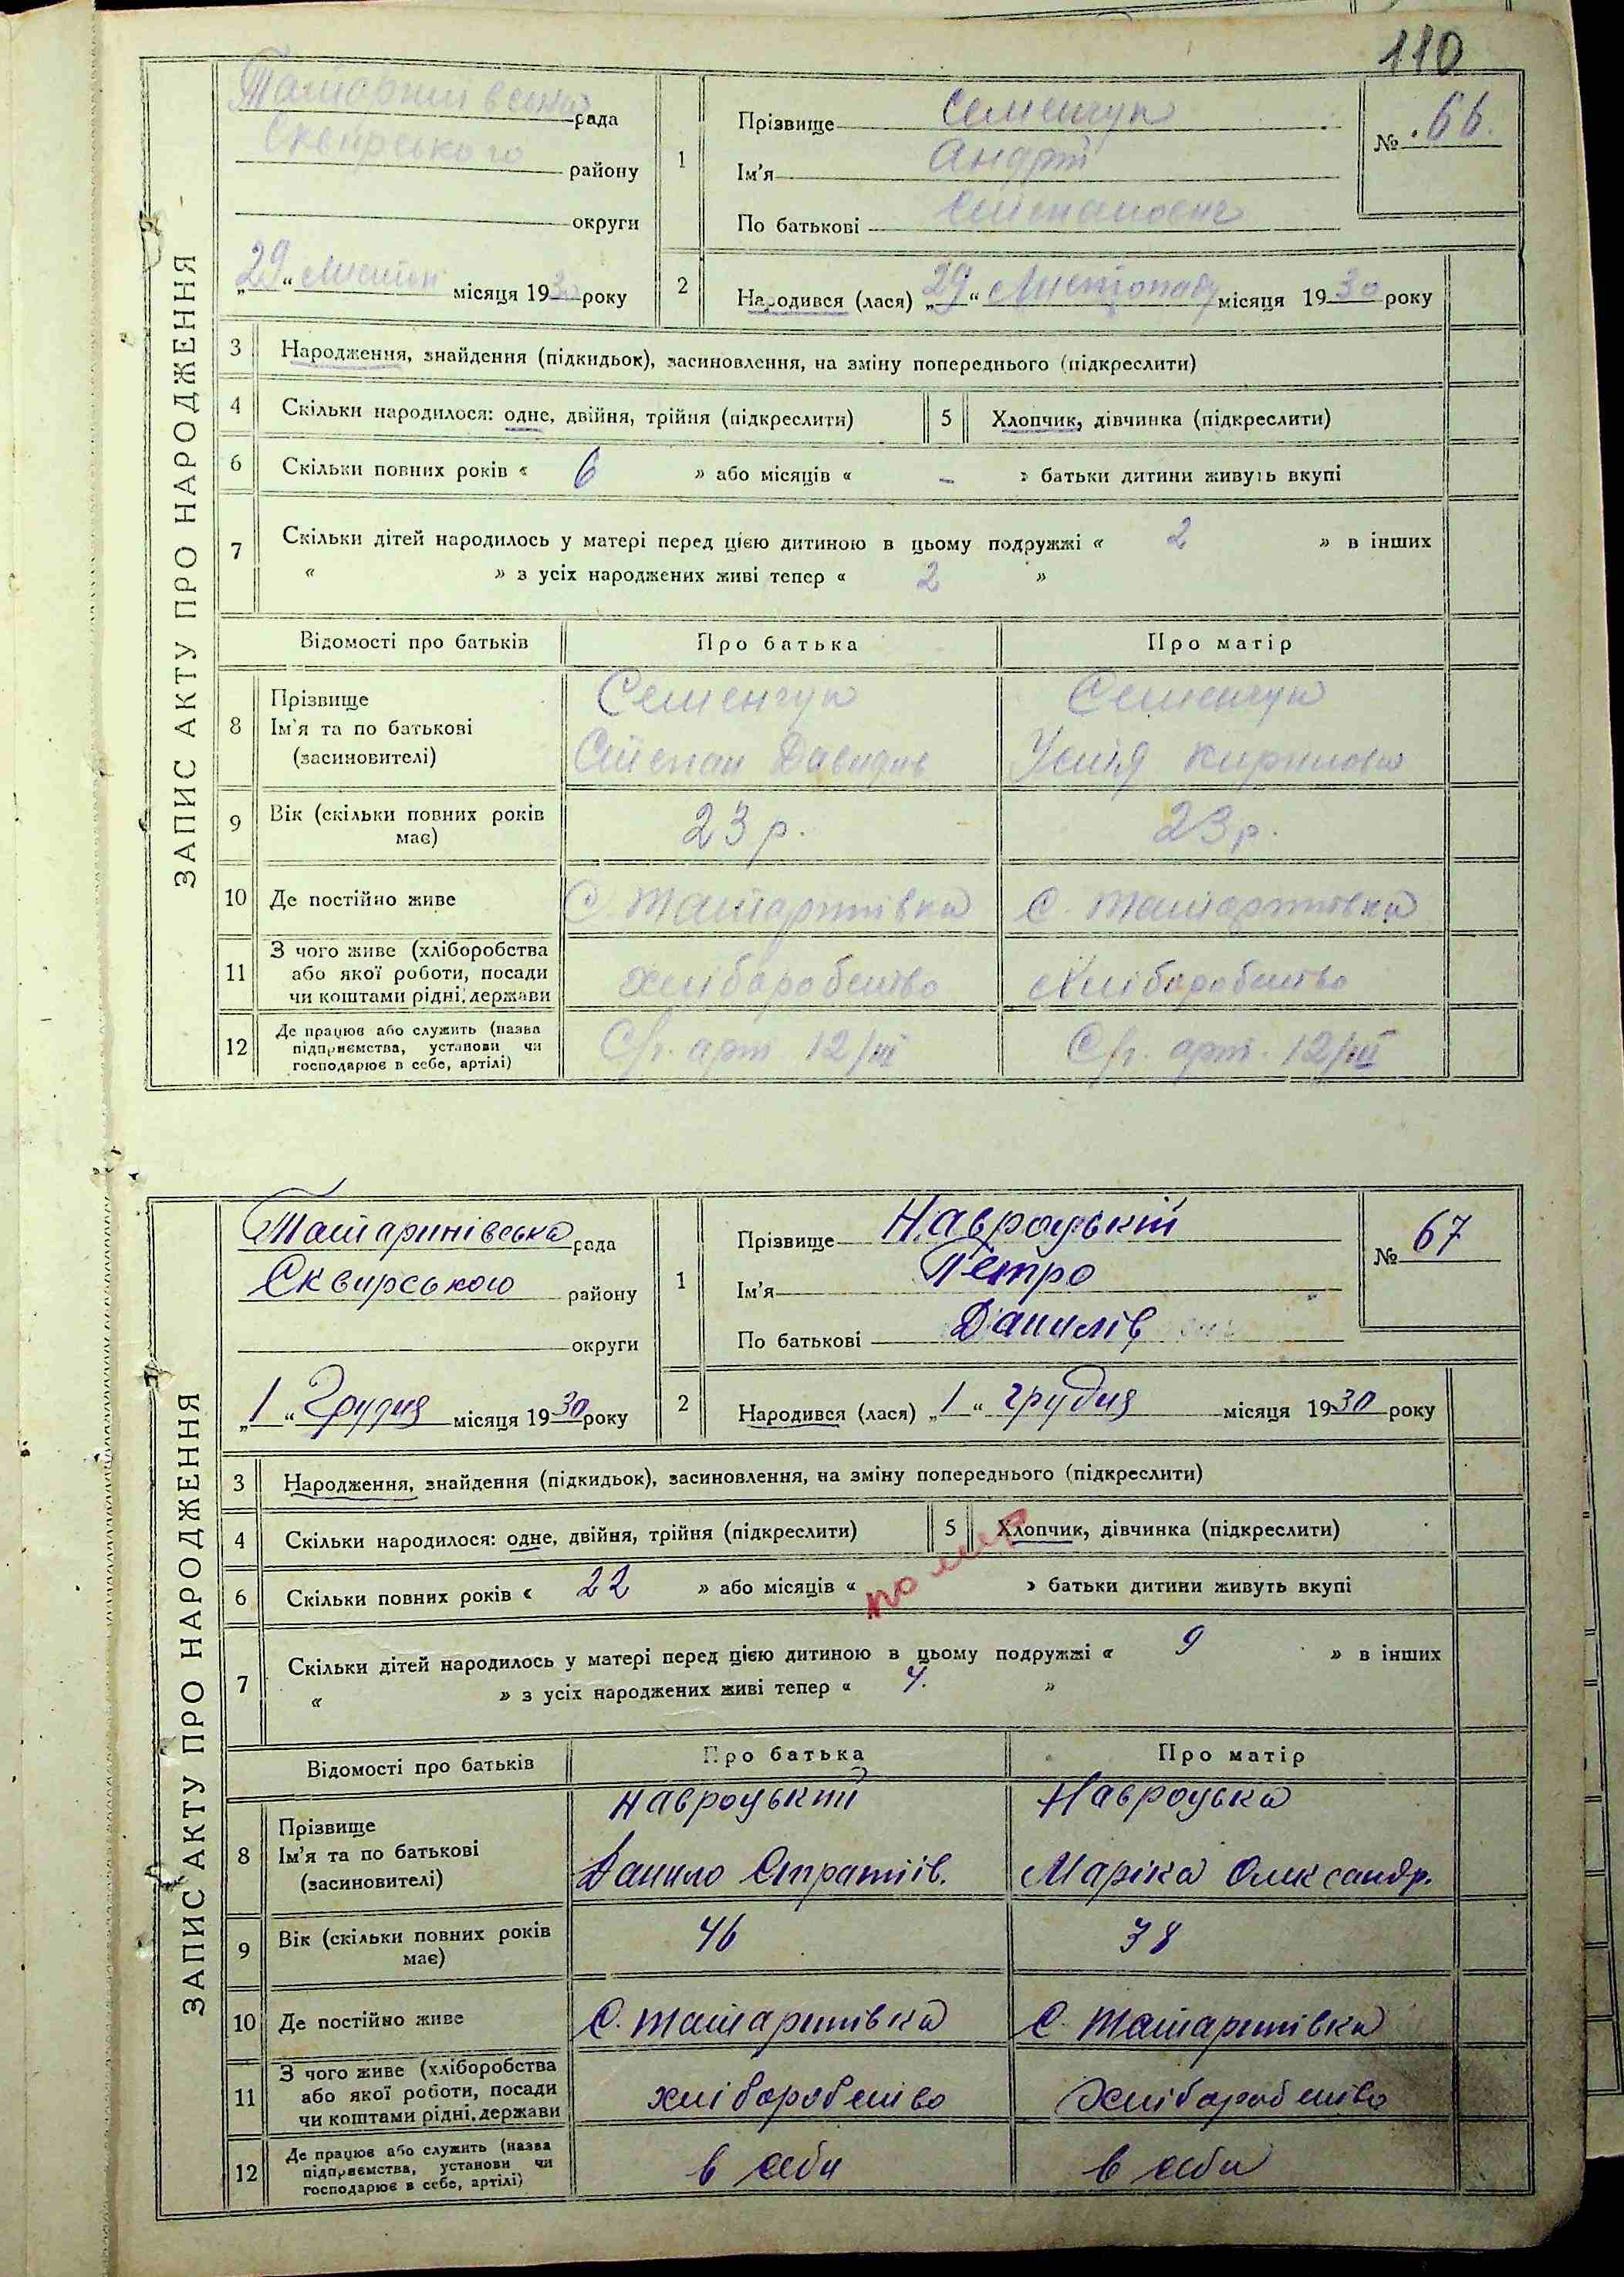 110
ЗАПИС АКТУ ПРО НАРОДЖЕННЯ
рада
Сквирського району
округи
„29“ місяця 1930 року
1
Прізвище Семенчук
Ім'я Андрій
По батькові Степанович
№ 66.
2
Народився (лася) „29“ Листопаду місяця 1930 року
3 Народження, знайдення (підкидьок), засиновлення, на зміну попереднього (підкреслити)
4 Скільки народилося: одне, двійня, трійня (підкреслити) 5 Хлопчик, дівчинка (підкреслити)
6 Скільки повних років « 6 » або місяців « - » батьки дитини живуть вкупі
7 Скільки дітей народилось у матері перед цією дитиною в цьому подружжі « 2 » в інших
« » з усіх народжених живі тепер « 2 »
Відомості про батьків Про батька Про матір
8 Прізвище Семенчук Семенчук
Ім'я та по батькові
(засиновителі) Степан Давидив Кирилова
9 Вік (скільки повних років має) 23 р. 23 р.
10 Де постійно живе С. Татаринівка С. Татаринівка
11 З чого живе (хліборобства
або якої роботи, посади
чи коштами рідні, держави хліборобство хліборобство
12 Де працює або служить (назва
підприємства, установи чи
господарює в себе, артілі) С/г. арт. 12/III С/г. арт. 12/III
ЗАПИС АКТУ ПРО НАРОДЖЕННЯ
Татаринівська рада
Сквирського району
округи
„1“ Грудня місяця 1930 року
1
Прізвище Навроцький
Ім'я Петро
По батькові Данилів
№ 67
2
Народився (лася) „1“ грудня місяця 1930 року
3 Народження, знайдення (підкидьок), засиновлення, на зміну попереднього (підкреслити)
4 Скільки народилося: одне, двійня, трійня (підкреслити) 5 Хлопчик, дівчинка (підкреслити)
6 Скільки повних років « 22 » або місяців « » батьки дитини живуть вкупі
7 Скільки дітей народилось у матері перед цією дитиною в цьому подружжі « 9 » в інших
« » з усіх народжених живі тепер « 4. »
Відомості про батьків Про батька Про матір
8 Прізвище Навроцький Навроцька
Ім'я та по батькові
(засиновителі) Данило Маріка Олександр.
9 Вік (скільки повних років має) 46 38
10 Де постійно живе С. Татаринівка С. Татаринівка
11 З чого живе (хліборобства
або якої роботи, посади
чи коштами рідні, держави хліборобство хліборобство
12 Де працює або служить (назва
підприємства, установи чи
господарює в себе, артілі) в себи в себи